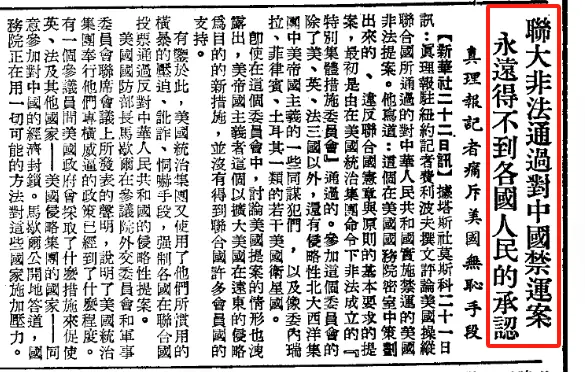 聯大非法通過對中國禁運案
永遠得不到各國人民的承認
真理報記者痛斥美國無恥手段
【新華社二十二日訊】據塔斯社莫斯科二十一日
訊：眞理報駐紐約記者費利波夫撰文評論美國操縱
聯合國所通過的對中華人民共和國實施禁運的美國
非法提案。他寫道：這個在美國國務院密室中策劃
出來的、違反聯合國憲章與原則的基本要求的提
案，最初是由在美國統治集團命令下非法成立的『
特別集體措施委員會』通過的。參加這個委員會的
除了美、英、法三國以外，還有侵略性北大西洋集
團中美帝國主義的一些同謀犯們，以及像委內瑞
拉、菲律賓、土耳其一類的若干美國衛星國。
卽使在這個委員會中，討論美國提案的情形也洩
露出，美帝國主義者這個以擴大美國在遠東的侵略
爲目的的新措施，並沒有得到聯合國許多會員國的
支持。
有鑒於此，美國統治集團又使用了他們所慣用的
橫暴的壓迫、訛詐、恫嚇手段，强制各國在聯合國
投票通過反對中華人民共和國的侵略性提案。
美國國防部長馬歇爾在參議院外交委員會和軍事
委員會聯席會議上所發表的聲明，說明了美國統治
集團奉行他們專橫威逼的政策已經到了什麼程度。
有一個參議員問美國政府會採取了什麼措施來促使
英、法及其他國家——美國侵略集團的國家——同
意參加對中國的經濟封鎖。馬歇爾公開地答道，國
務院正在用一切可能的方法對這些國家施加壓力。